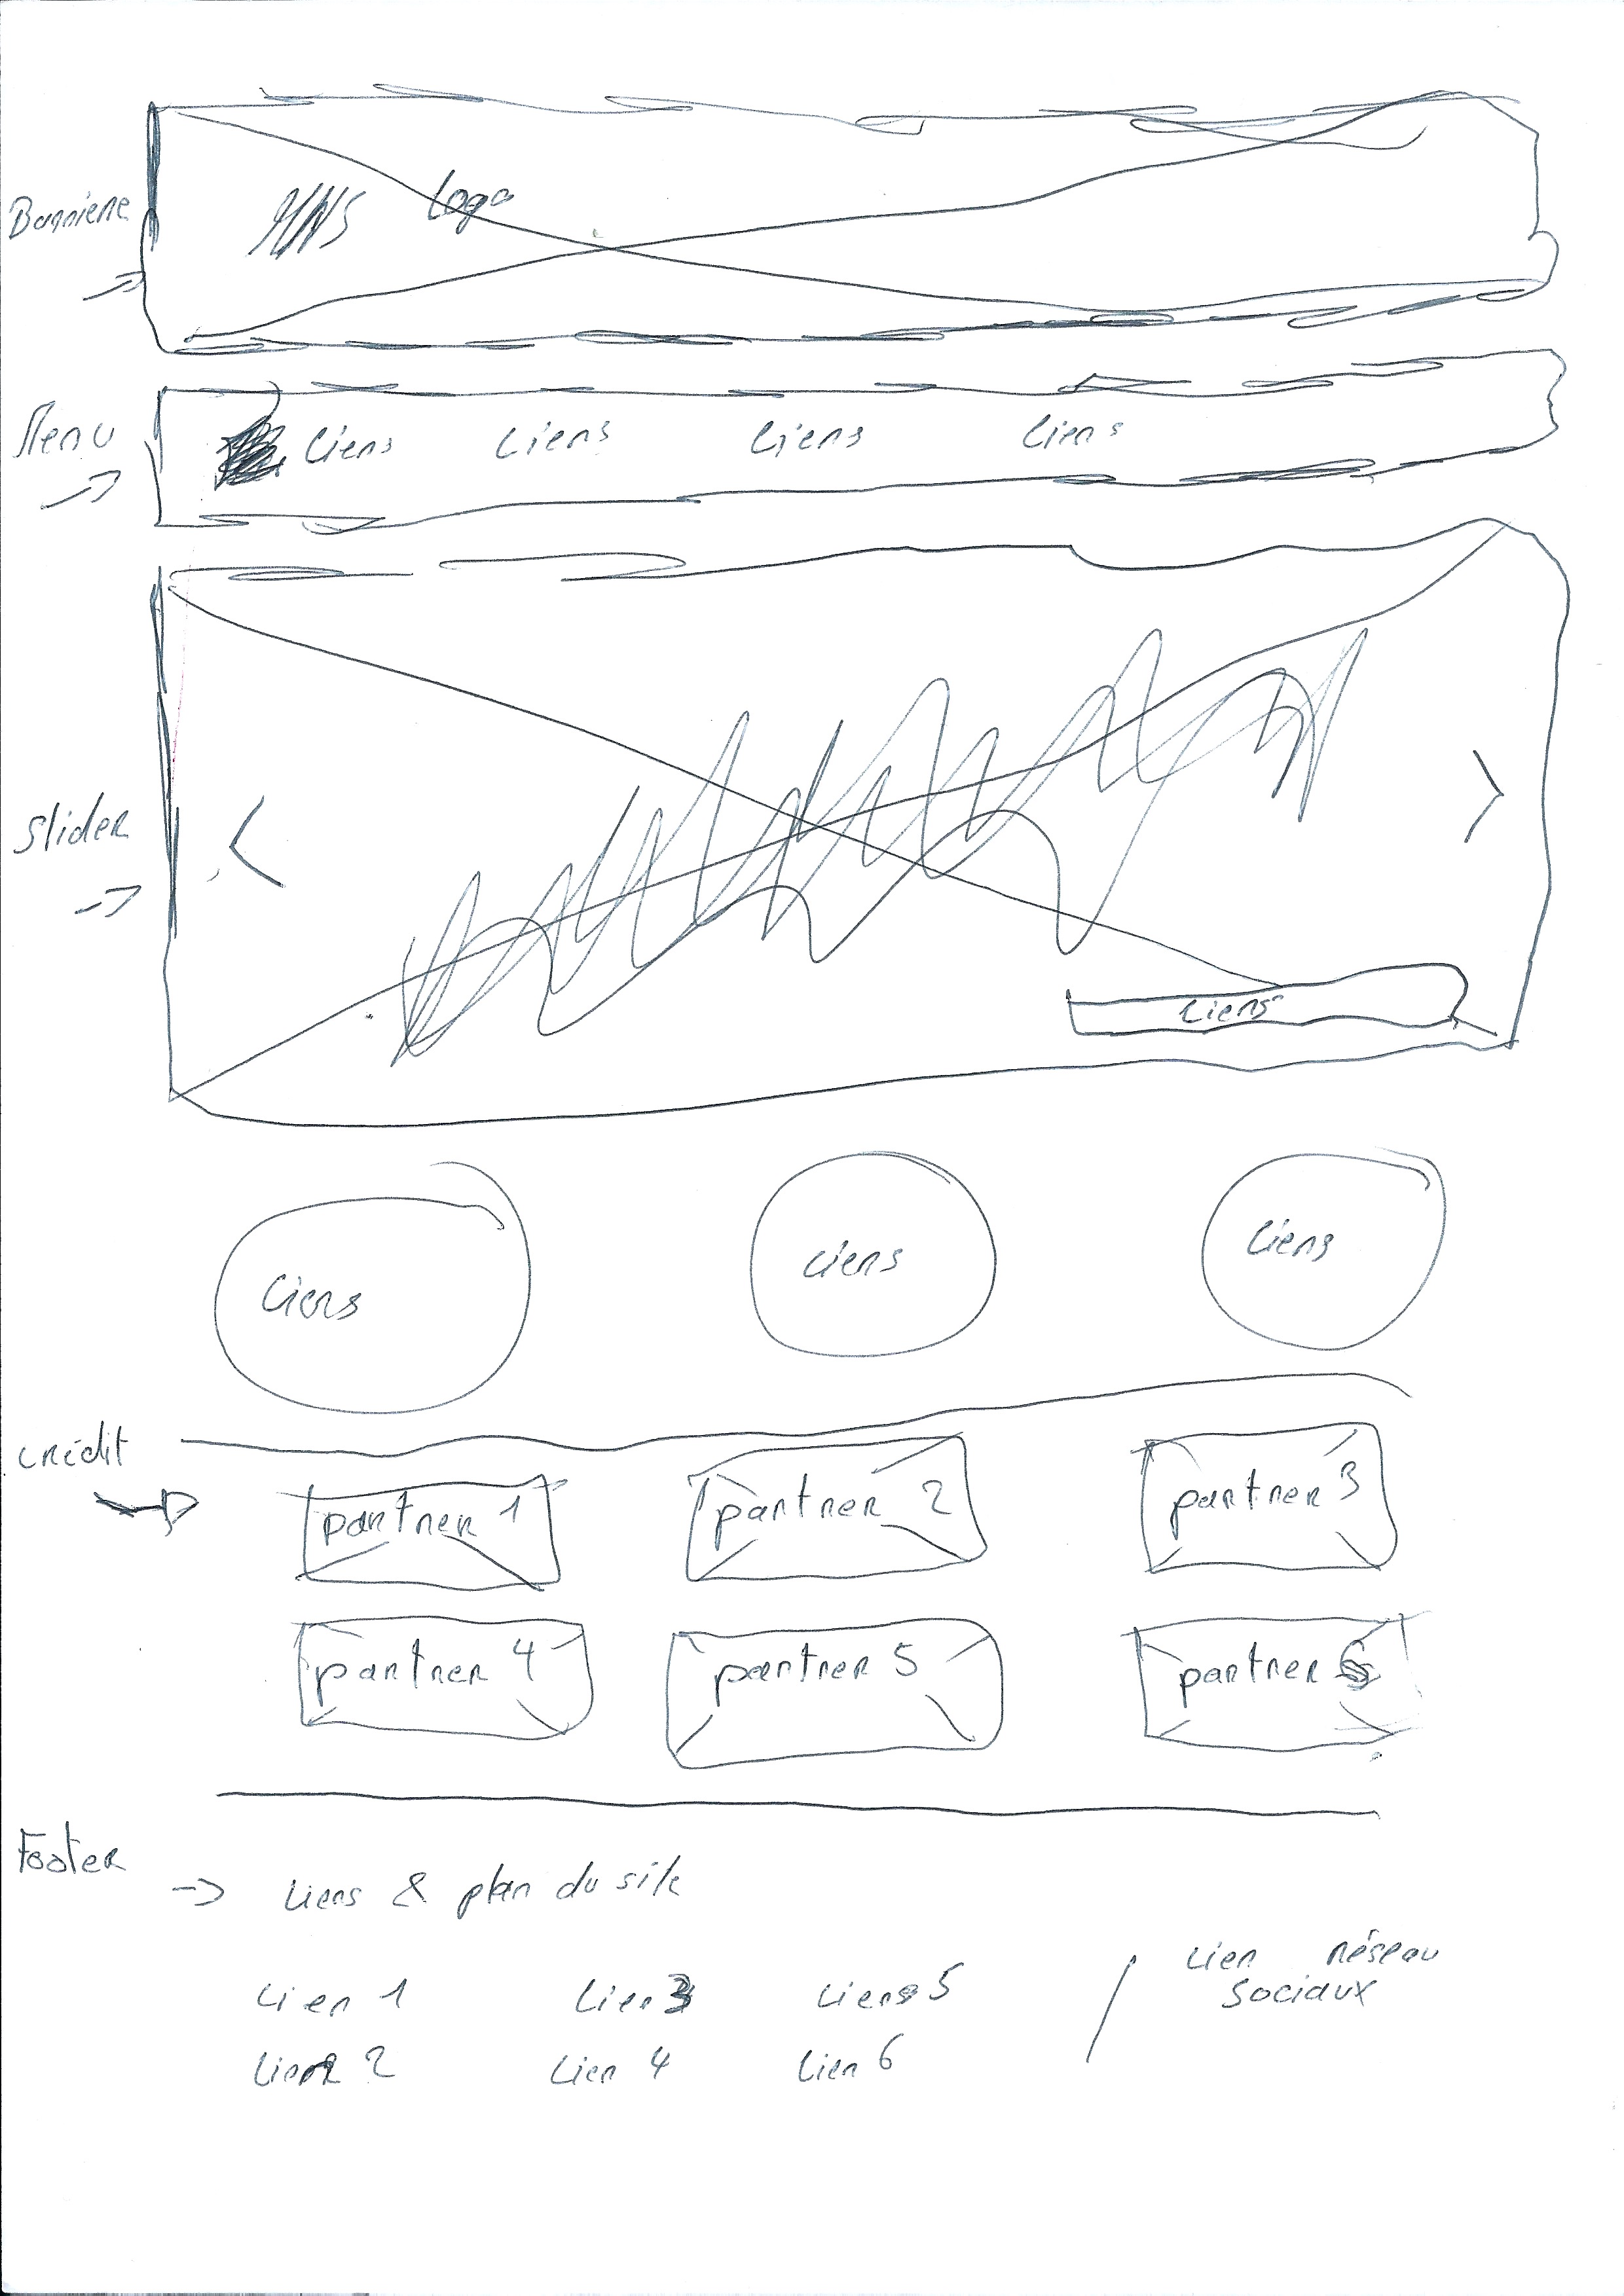 Bannière
Logo
Menu
Liens Liens Liens Liens
Slider
< >
Liens
Liens Liens Liens
Crédit
partner 1 partner 2 partner 3
partner 4 partner 5 partner 6
Footer
-> Liens & plan du site
Lien 1 Lien 3 Liens 5 / Lien réseau
sociaux
Lien 2 Lien 4 Lien 6